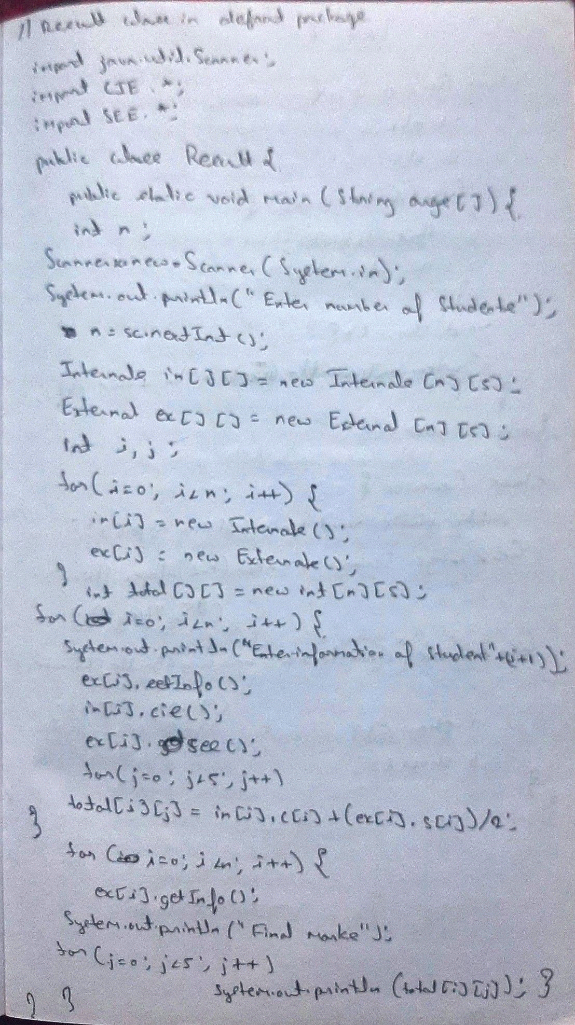 // Result class in default package
import java.util.Scanner;
import CIE.*;
import SEE.*;
public class Result {
public static void main (String args[]) {
int n;
Scanner s = new Scanner (System.in);
System.out.println (" Enter number of Students");
n = s.nextInt ();
Internals in[][] = new Internals [n][5];
External ex[][] = new External [n][5];
int i, j;
for (i=0; i<n; i++) {
in[i] = new Internals ();
ex[i] = new Externals ();
}
int total [][] = new int [n][5];
for (i=0; i<n; i++) {
System.out.println ("Enter information of student"+(i+1));
ex[i].setInfo ();
in[i].cie ();
ex[i].see ();
for (j=0; j<5; j++)
total[i][j] = in[i].c[i] + (ex[i].s[i])/2;
}
for (i=0; i<n; i++) {
ex[i].getInfo ();
System.out.println (" Final marks");
for (j=0; j<5; j++)
System.out.println (total[i][j]); }
} }